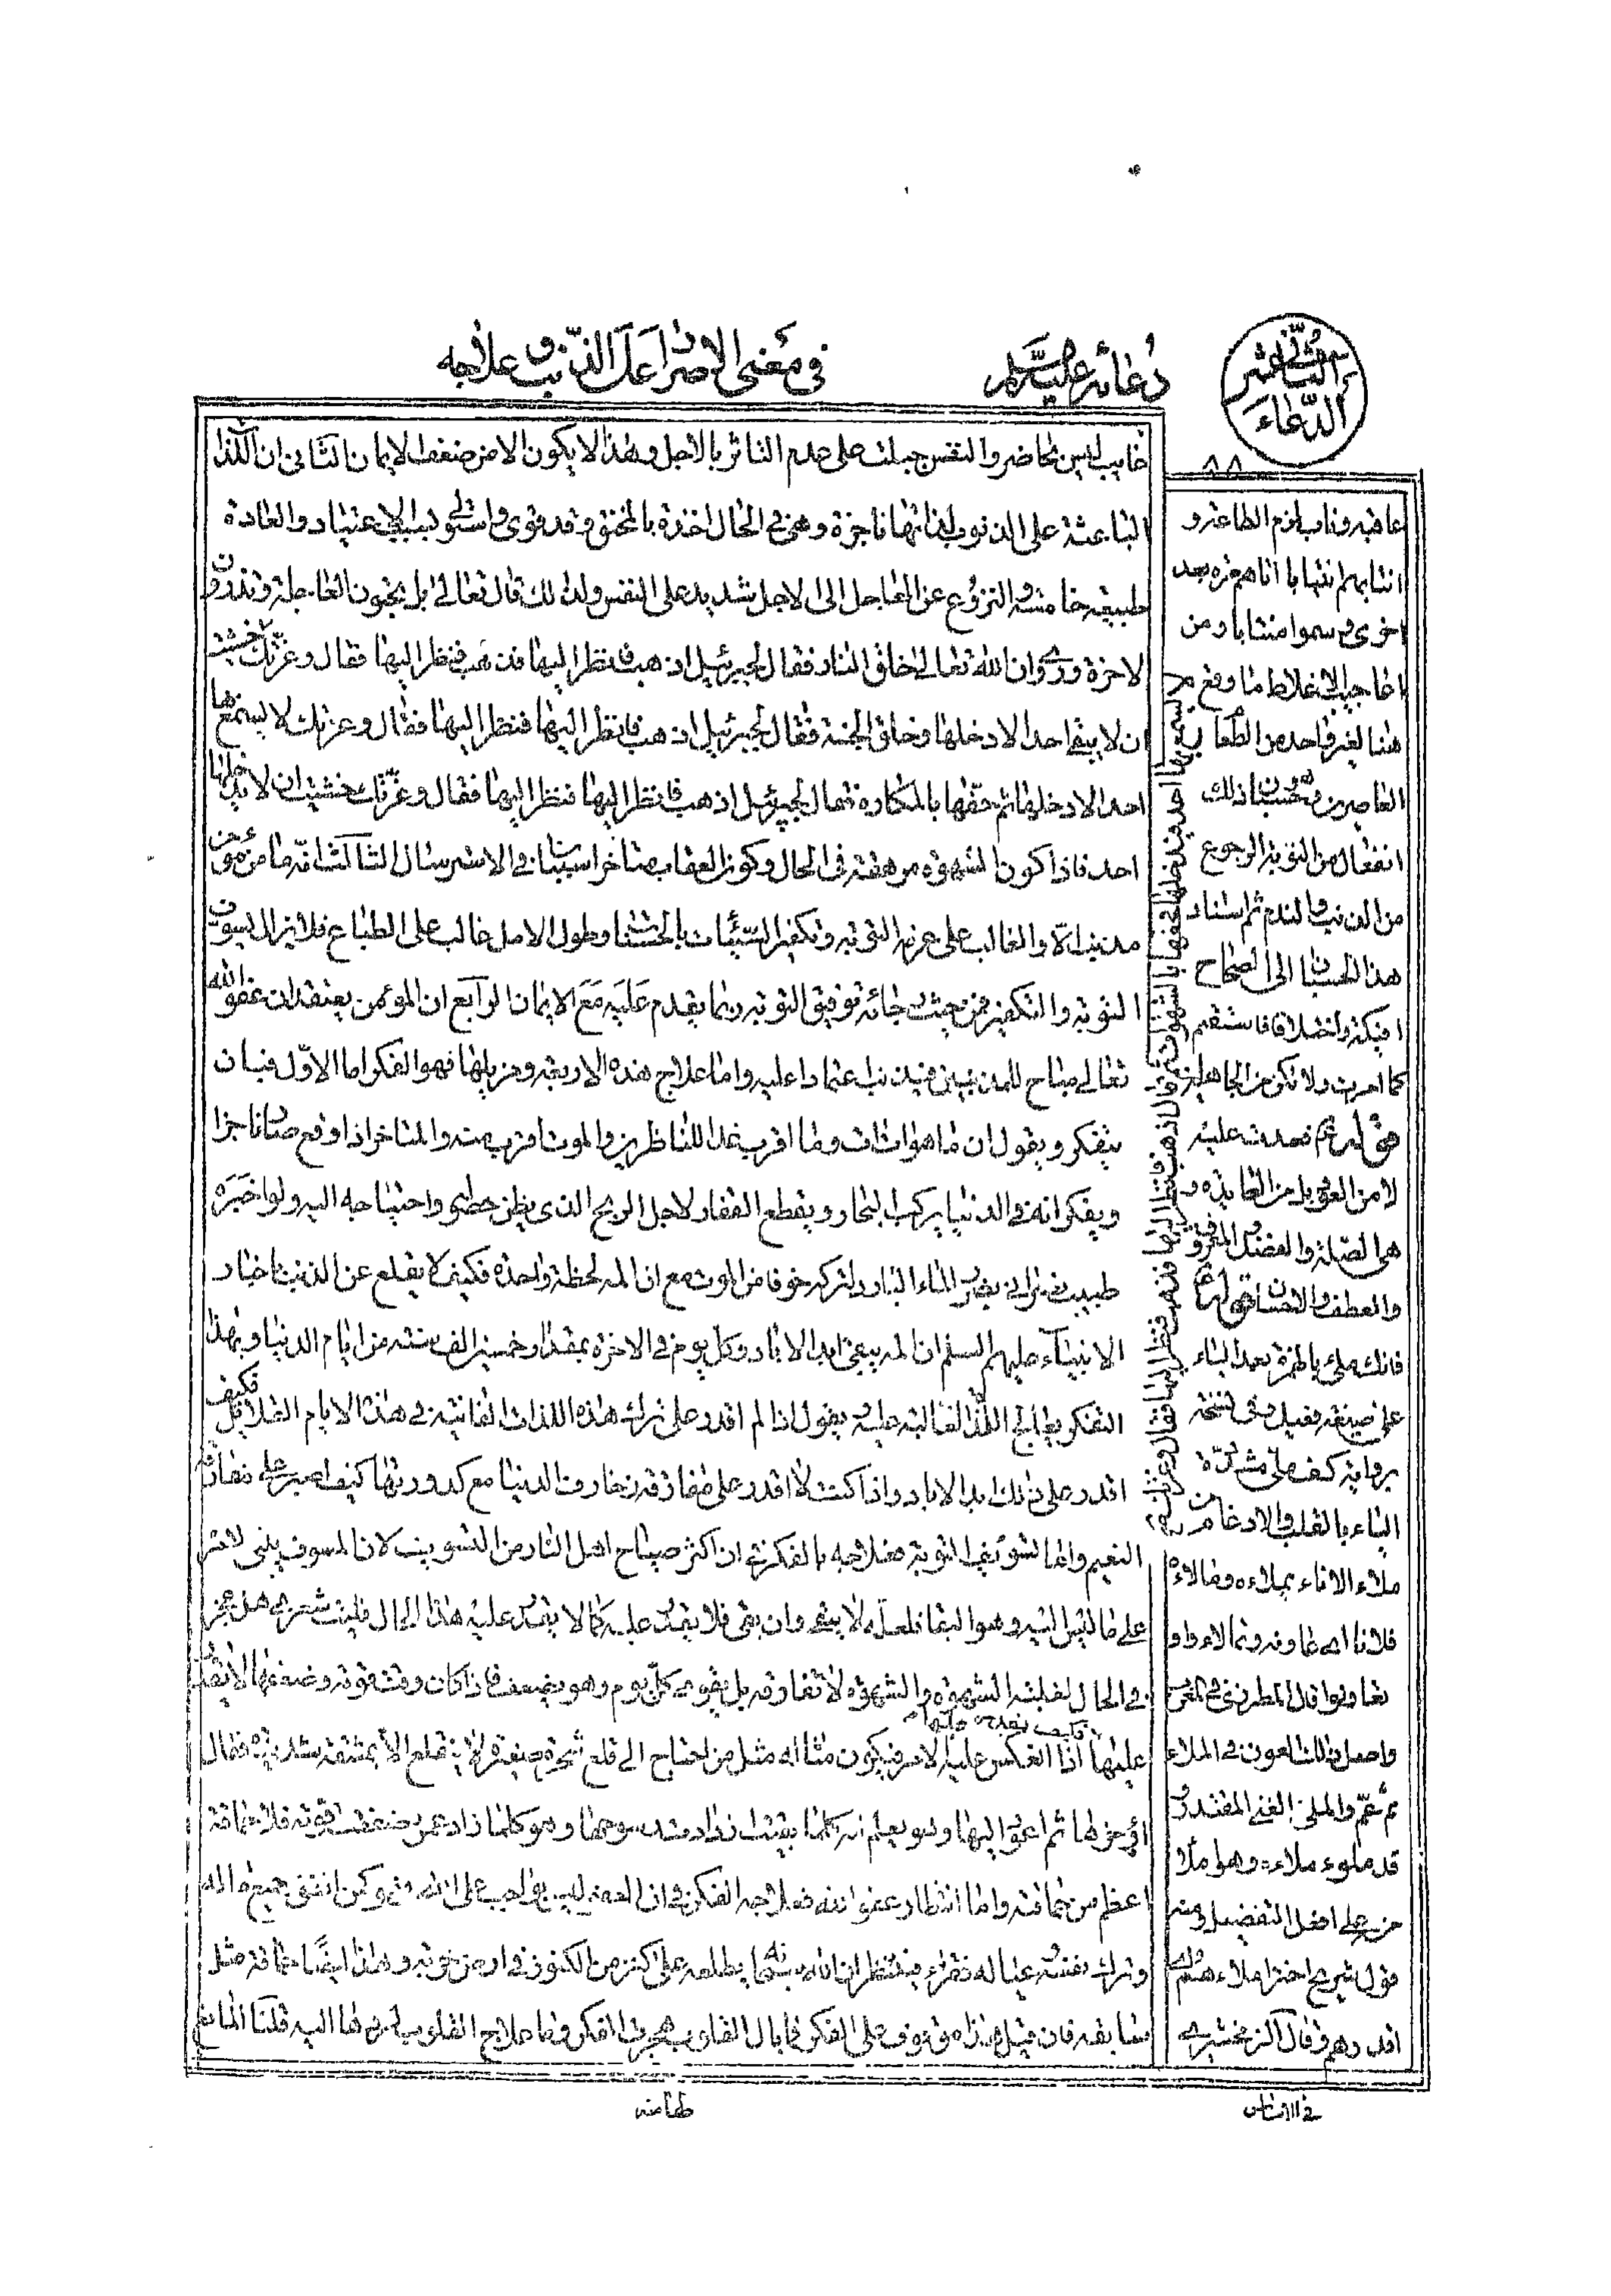 في معنى الاصرار على الذنب وعلاجه
دعائه عليه السلم
شرح الثاني عشر
الدعاء
٨٨
غايب ليس بحاضر والنفس جبلت على عدم التاثر بالاجل وهذا لا يكون الا من ضعف الايمان الثاني ان اللذات
الباعثة على الذنوب لذاتها ناجزة وهي في الحال اخذة بالمخنق وقد قوى واستولى بسبب الاعتياد والعادة
طبيعة خامسة والنزوع عن العاجل الى الاجل شديد على النفس ولذلك قال تعالى بل يحبون العاجلة ويذرون
الاخرة وروى ان الله تعالى خلق النار فقال لجبرئيل اذهب فانظر اليها فذهب فنظر اليها فقال وعزتك خشيت
ان لا يبقى احد الا دخلها وخلق الجنة فقال لجبرئيل اذهب فانظر اليها فنظر اليها فقال وعزتك لا يسمع بها
احد الا دخلها ثم حفها بالمكاره فقال لجبرئيل اذهب فانظر اليها فنظر اليها فقال وعزتك خشيت ان لا يدخلها
احد فاذا كون الشهوة مرهقة في الحال وكون العقاب متاخرا سببان في الاسترسال الثالث انه ما من مؤمن
مذنب الا والغالب على عزمه التوبة وتكفير السيئات بالحسنات وطول الامل غالب على الطباع فلا يزال يسوف
التوبة والتكفير فمن حيث رجائه توفيق التوبة ربما يقدم عليه مع الايمان الرابع ان المؤمن يعتقد ان عفو الله
تعالى مباح للمذنبين فيذنب اعتمادا عليه واما علاج هذه الاربعة ومزيلها فهو الفكر اما الاول فبان
يتفكر ويقول ان ما هو ات ات وما اقرب غدا للناظرين والموت اقرب منه والمتاخر اذا وقع صار ناجزا
ويفكر انه في الدنيا يركب البحار ويقطع القفار لاجل الربح الذي يظن حصوله واحتياجه اليه ولو اخبره
طبيب نصراني بضرر الماء البارد لتركه خوفا من الموت مع ان المه لحظة واحدة فكيف لا يقلع عن الذنب باخبار
الانبياء عليهم السلم ان المه يبقى ابد الاباد وكل يوم في الاخرة بمقدار خمسين الف سنة من ايام الدنيا وبهذا
التفكر يعالج اللذة الغالبة عليه ويقول اذا لم اقدر على ترك هذه اللذات الفانية في هذا الايام القلائل فكيف
اقدر على ذلك ابد الاباد واذا كنت لا اقدر على مفارقة زخارف الدنيا مع كدورتها كيف اصبر على مفارقة
النعيم واما تسويف التوبة فعلاجه بالفكر في ان اكثر صياح اهل النار من التسويف لان المسوف يبني الامر
على ما ليس اليه وهو البقا فلعله لا يبقى وان بقى فلا يقدر عليه كما لا يقدر عليه هذا الحال فليت شعري هل عجز
في الحال الا لغلبة الشهوة والشهوة لا تفارقه بل يقوى كل يوم وهو يضعف فاذا كان وقت قوته وضعفها لا يقدر
عليها فكيف يقدر عليها اذا انعكس عليه الامر فيكون مثاله مثل من احتاج الى قلع شجرة صغيرة لا ينقلع الا بمشقة شديدة فقال
اؤخرها ثم اعود اليها وهو يعلم انه كلما بقيت زادت رسوخها وهو كلما زاد عمره ضعفت قوته فلا حماقة
اعظم من حماقته واما انتظار عفو الله فعلاجه الفكر في ان العفو ليس بواجب على الله وهو كمن انفق جميع ماله
وترك نفسه وعياله فقراء فينتظر ان الله سبحانه يطلعه على كنز من الكنوز في ارض خربة وهذا ايضا حماقة مثل
سابقه فان قيل هذا موقوف على الفكر فما بال القلوب هجرت الفكر وما علاج القلوب لردها اليه قلنا المانع
طما منه
عاقبه وناب لزم الطاعة و
انتابهم انتيابا اتاهم مرة بعد
اخرى وسموا منتابا ومن
اعاجيب الاغلاط ما وقع
هنا لغير واحد من الطلاب
القاصرين من حسبان ذلك
انفعال من التوبة الرجوع
من الذنب والندم ثم اسناد
هذا الحسبان الى الصحاح
افيكة واختلاقا فاستقم
كما امرت ولا تكن من الجاهلين
قوله ثم فعدت عليه
لا من العود بل من العايدة و
هي الصلة والفضل والمعروف
والعطف والاحسان قوله
فانك ملئ بالهمزة بعد الياء
على صيغة فعيل وفي نسخة
برواية كف ملى مشددة
الياء بالقلب والادغام من
ملاء الاناء يملاءه ومالاءه
فلانا اى عاونه وتمالاءوا
تعاونوا قال المطرزي في المغرب
واصل ذلك العون في الملاء
ثم عم والملئ الغني المقتدر
قد ملوء ملاءة وهو املا
منه على افعل التفضيل ومنه
قول شريح اختر املاءهم اي
اقدرهم وقال الزمخشري
في الاساس
يسمع بها احد فيدخلها فحفها بالشهوات ثم قال اذهب فانظر اليها فذهب فنظر اليها فقال وعزتك